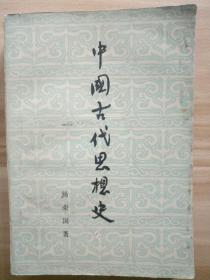 中國古代思想史
杨荣国著